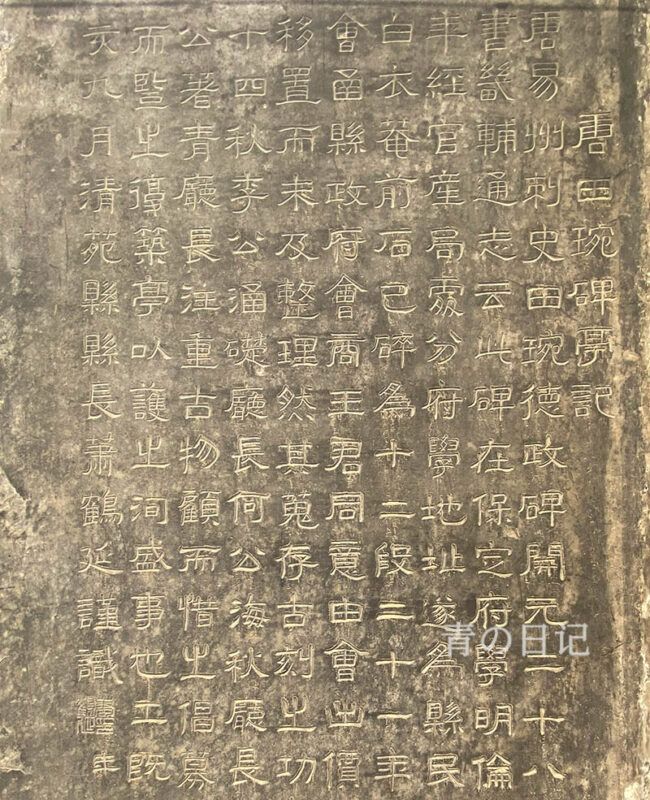 唐田琬碑亭記
唐易州刺史田琬德政碑開元二十八
書畿輔通志云此碑在保定府學明倫
年經官產局處分府學地址遂為縣民
白衣菴前石已碎為十二段二十一年
會函縣政府會商王君同意由會出價
移置而未及整理然其蒐存古刻之功
十四秋李公涵礎廳長何公海秋廳長
公著青廳長注重古物顧而惜之倡募
而豎之復築亭以護之洵盛事也工既
亥九月清苑縣縣長蕭鶴延謹識
青の日记